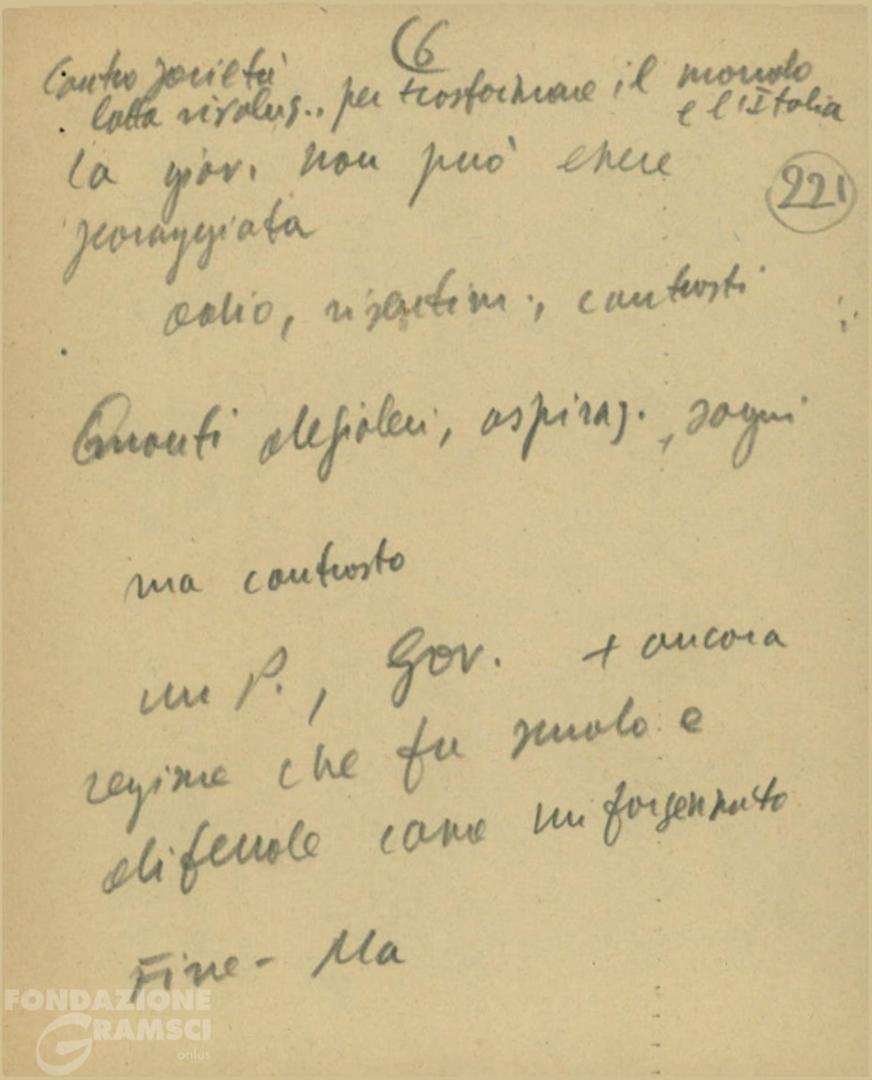 (6
Contro società
lotta rivoluz.. per trasformare il mondo
e l'Italia
La giov. non può essere
221
scoraggiata
odio, risentim., contrasti
Quanti desideri, aspiraz., sogni
ma contrasto
un P., Gov. + ancora
regime che fu scuola e
difende come un forsennato
Fine - Ma
FONDAZIONE
GRAMSCI
onlus